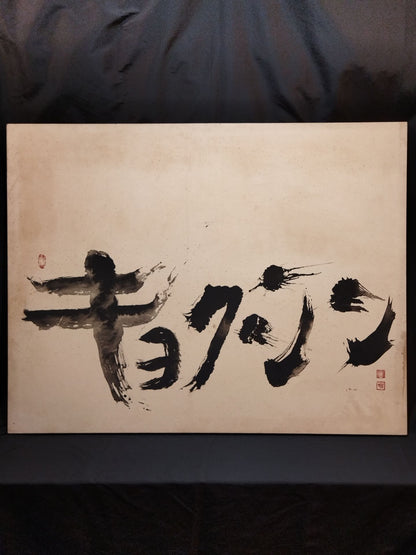 キョクシン